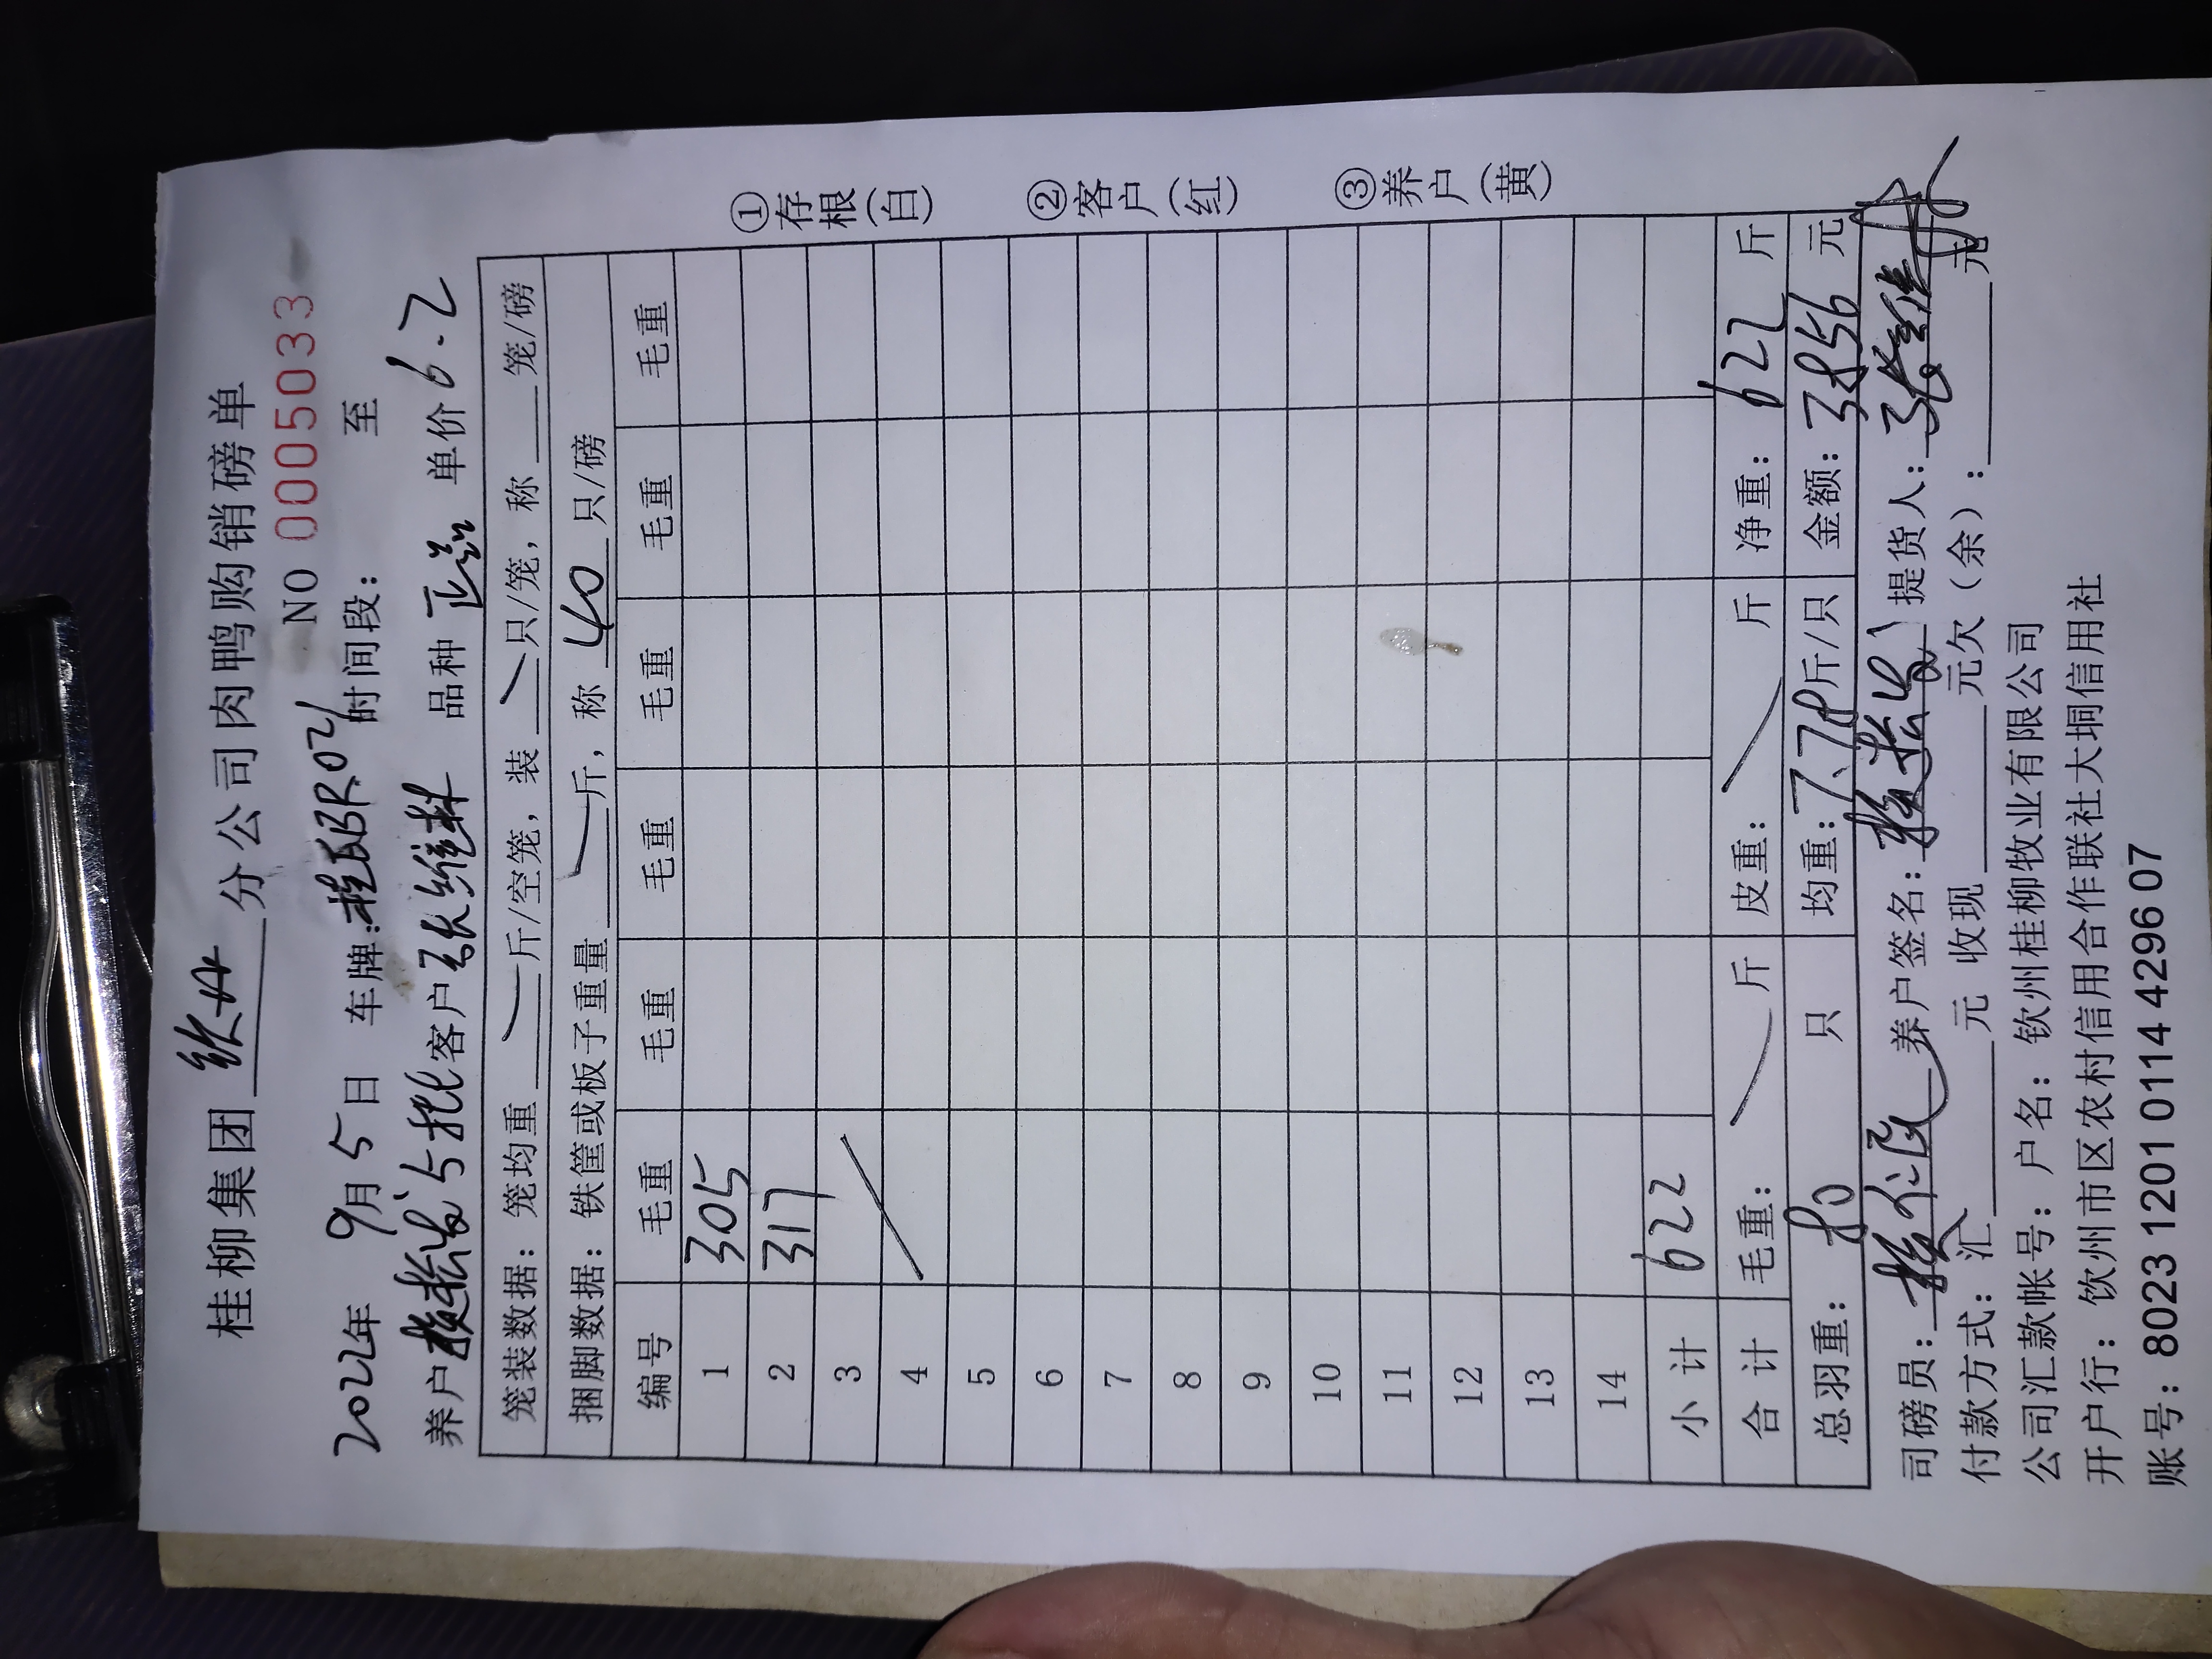 桂柳集团 钦州 分公司肉鸭购销磅单
NO 0005033
2022年 9月 5日 车牌: 时间段： 至
养户 5批 客户 张维 品种 单价 6.2
笼装数据：笼均重 斤/空笼，装 只/笼，称 笼/磅
捆脚数据：铁筐或板子重量 斤，称 40 只/磅
编号 毛重 毛重 毛重 毛重 毛重 毛重
1 305
2 317
3
4
5
6
7
8
9
10
11
12
13
14
小计 622
合计 毛重： 斤 皮重： 斤 净重：622 斤
总羽重：80 只 均重：7.78 斤/只 金额：3856 元
司磅员： 养户签名： 提货人：张维
付款方式：汇 元 收现 元欠（余）： 元
公司汇款帐号：户名：钦州桂柳牧业有限公司
开户行：钦州市区农村信用合作联社大垌信用社
账号：8023 1201 0114 4296 07
①存根（白）
②客户（红）
③养户（黄）